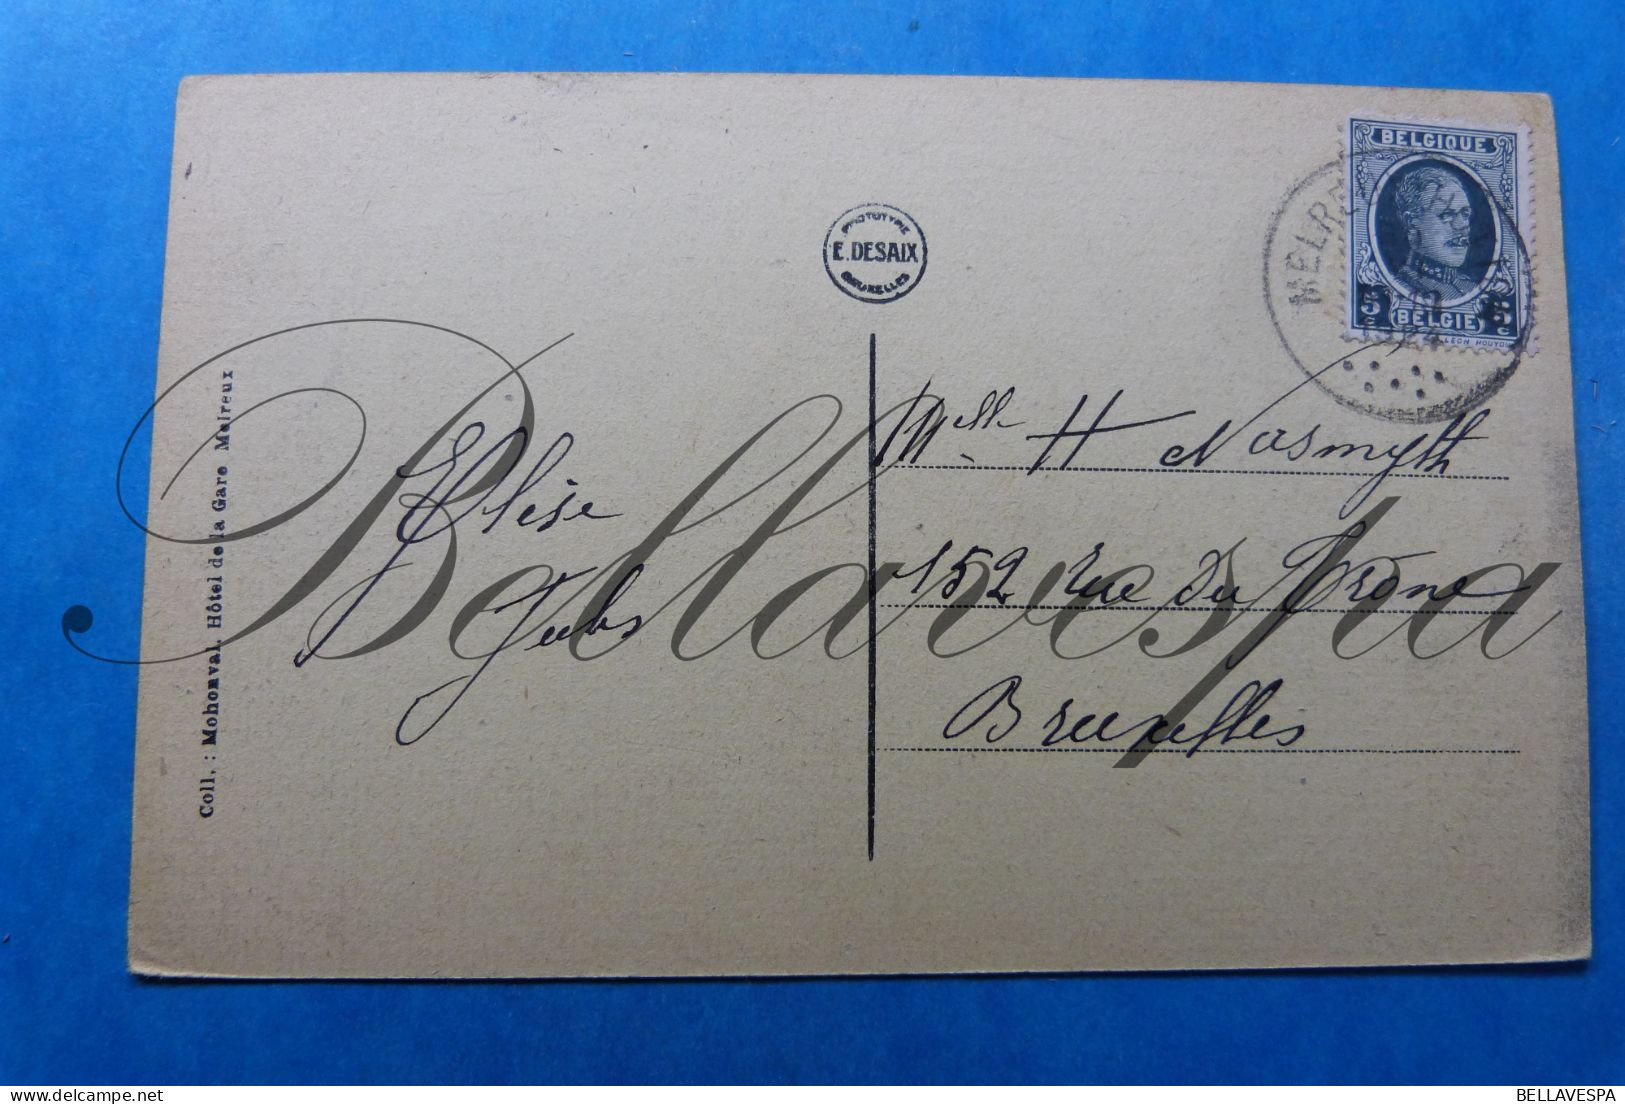 BELGIQUE
5 c BELGIE 5 c
MELR
PROTOTYPE
E. DESAIX
BRUXELLES
Coll. : Mohonval. Hôtel de la Gare Melreux
Elise
Mlle H Nasmyth
152 rue du Trône
Bruxelles
Bellavespa
BELLAVESPA